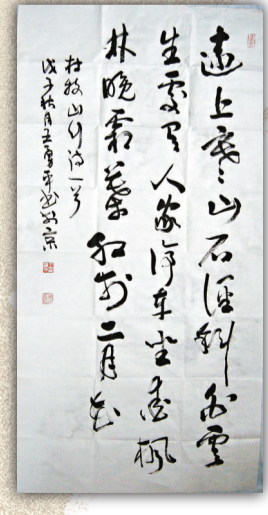 遠上寒山石徑斜白雲
生處有人家停車坐愛楓
林晚霜葉紅於二月花
杜牧山行诗一首
戊子秋月王勇平书於京